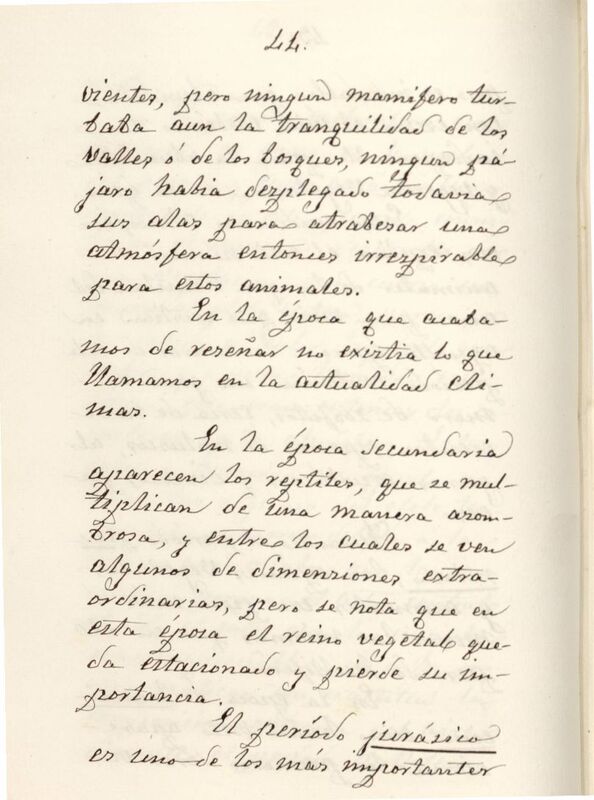 44.
vientes, pero ningun mamífero tur-
baba aun la tranquilidad de los
valles ó de los bosques, ningun pá-
jaro habia desplegado todavia
sus alas para atrabesar una
atmósfera entonces irrespirable
para estos animales.
En la época que acaba-
mos de reseñar no existia lo que
llamamos en la actualidad cli-
mas.
En la época secundaria
aparecen los reptiles, que se mul-
tiplican de una manera asom-
brosa, y entre los cuales se ven
algunos de dimensiones extra-
ordinarias, pero se nota que en
esta época el reino vegetal que-
da estacionado y pierde su im-
portancia.
El período jurásico
es uno de los más importantes